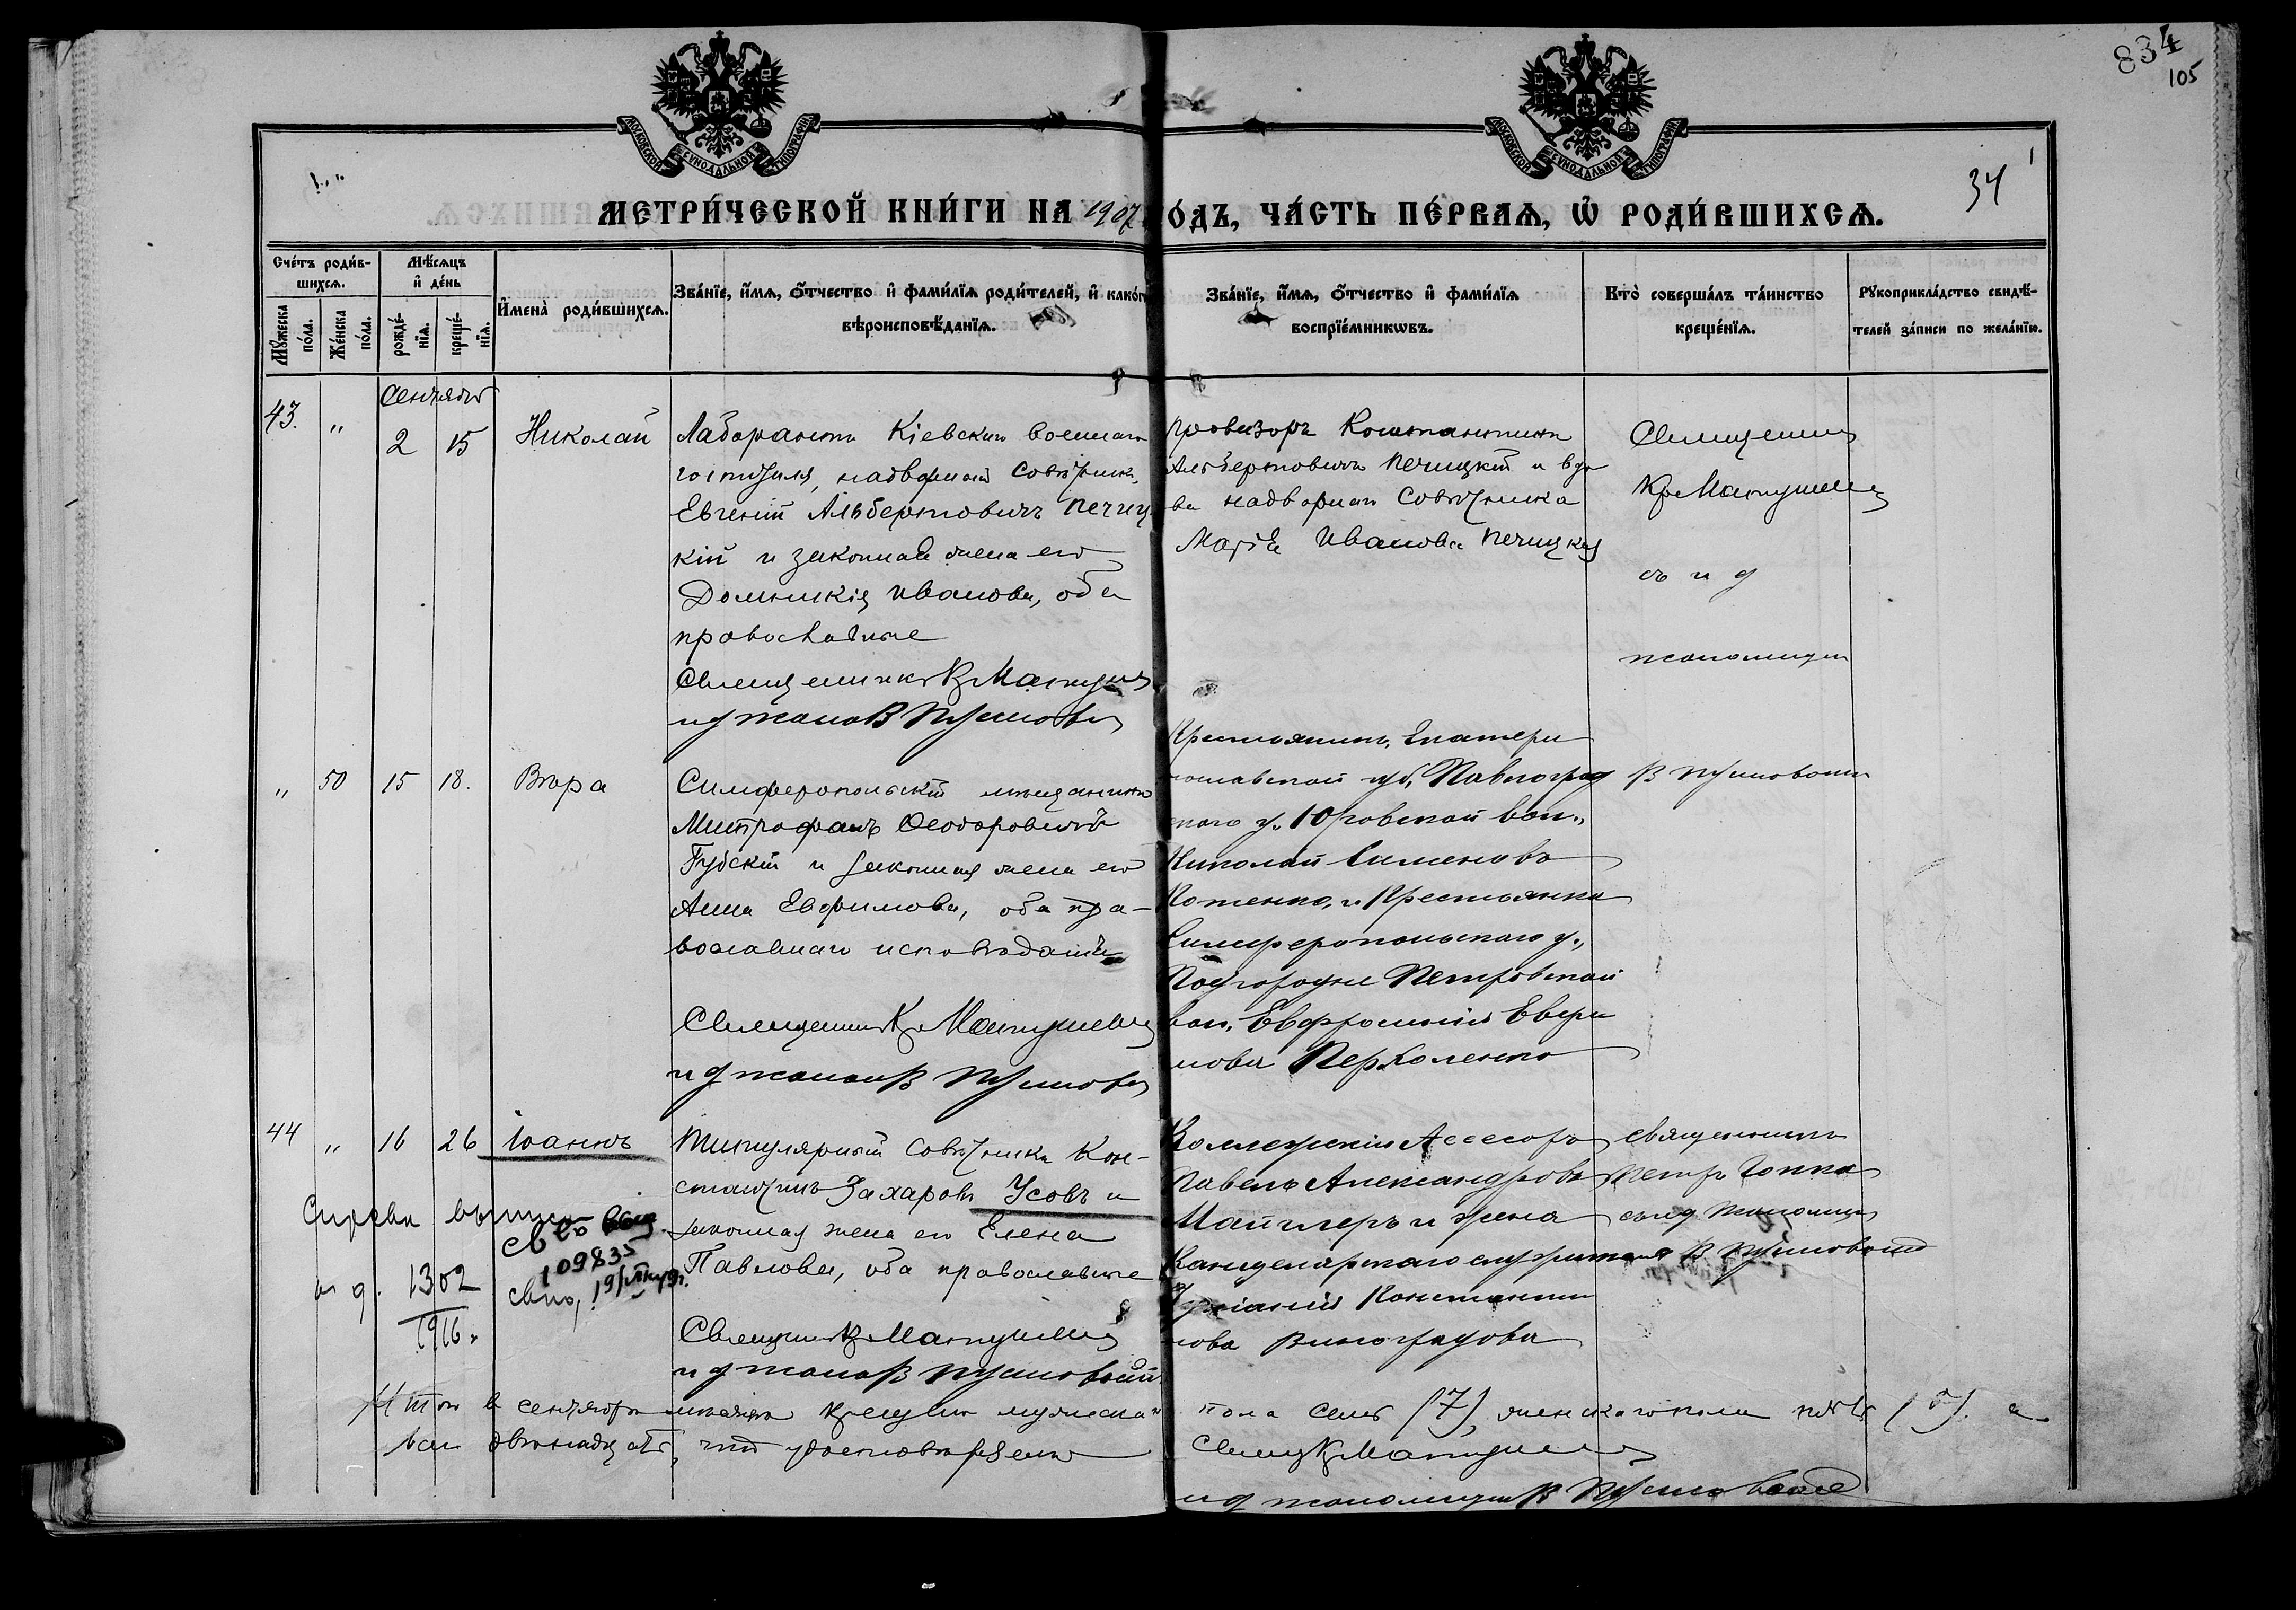 834
105
МОСКОВСКОЙ СУНОДАЛЬНОЙ ТИПОГРАФІИ
МОСКОВСКОЙ СУНОДАЛЬНОЙ ТИПОГРАФІИ
34
МЕТРИ́ЧЕСКОЙ КНИ́ГИ НА 1907 О́ДЪ, ЧА́СТЬ ПЕ́РВАѦ, Ѡ РОДИ́ВШИХСѦ.
Сче́тъ роди́в-
шихсѧ.
Мꙋ́жеска по́ла.
Же́нска по́ла.
Мѣ́сѧцъ
и҆ де́нь
рожде́-
нїѧ.
креще́-
нїѧ.
И҆мена̀ роди́вшихсѧ.
Зва́нїе, и҆́мѧ, ѻ҆́тчество и҆ фами́лїѧ роди́телей, и҆ како́г
вѣроисповѣ́данїѧ.
Зва́нїе, и҆́мѧ, ѻ҆́тчество и҆ фами́лїѧ
воспрїе́мникѡвъ.
Кто̀ соверша́лъ та́инство
креще́нїѧ.
Рꙋкоприкла́дство свидѣ́-
телей за́писи по жела́нїю.
Сентябрь
43. " 2 15 Николай
Лаборантъ Кіевскаго военнаго
госпиталя, надворный Совѣтникъ
Евгеній Альбертовичъ Печиц
кій и законная жена его
Домникія Иванова, оба
православные
Священникъ К Матушев
и д псалом В
Провизоръ Константинъ
Альбертовичъ Печицкій и вдо
ва надворнаго Совѣтника
Марія Иванова Печицкая
Священник
К Матушев
съ и д
псаломщик
" 50 15 18. Вѣра
Симферопольскій мѣщанинъ
Митрофанъ Ѳеодоровичъ
Губскій и законная жена его
Анна Евфимова, оба пра-
вославнаго исповѣданія
Священник К Матушев
и д псалом В
Крестьянинъ Екатери
нославской губ. Павлоград
скаго у. Юрьевской вол.,
Николай Сименовъ
Котенко, и Крестьянка
Симферопольскаго у.,
Подгородне Петровской
вол. Евфросинія Евфи
мова
44 " 16 26 Іоаннъ
Титулярный Совѣтникъ Кон-
стантинъ Захаровъ Усовъ и
законная жена его Елена
Павлова, оба православные
Священник К Матушев
и д псалом В
Коллежскій Ассесоръ
Павелъ Александровъ
и жена
Канцелярскаго служителя
Константи
нова Виноградова
священникъ
Петръ
съ и д псаломщ
В
Справка выписа
и д. 1302
1916.
109835
Итого въ сентябрѣ мѣсяцѣ крещено мужеска
пола семь (7), женскаго пола пять (5). а
всего двѣнадцать, что удостовѣряемъ
Свящ К Матушев
и д псаломщик В